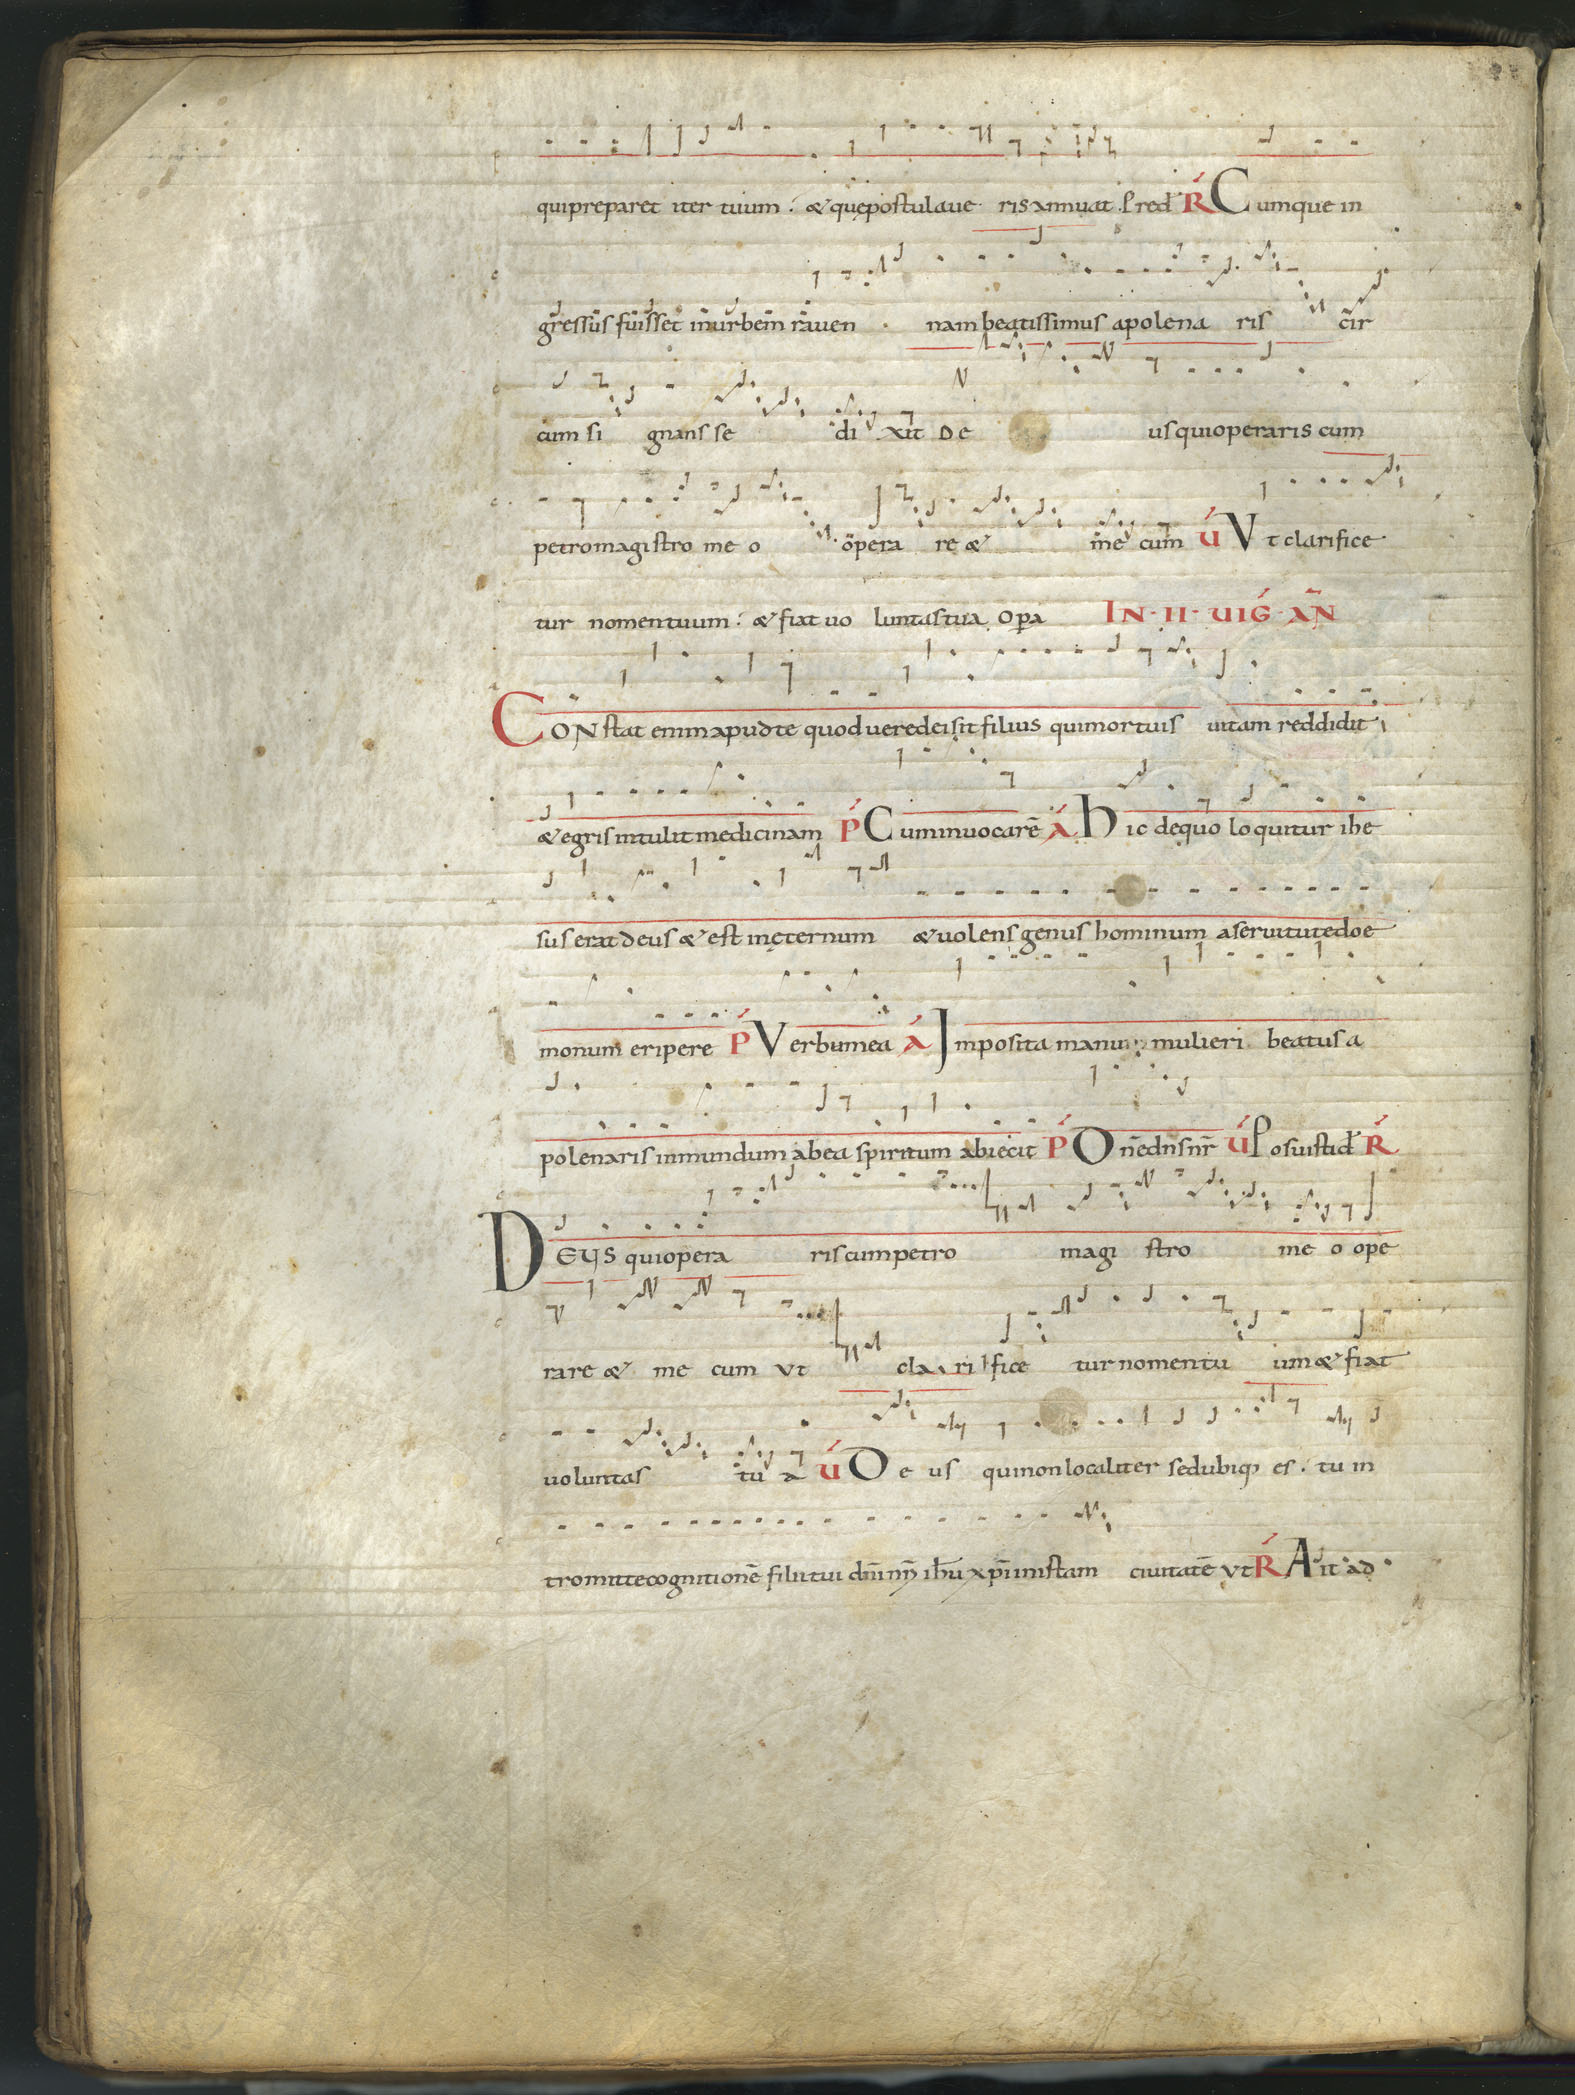 quipreparet iter tuum : & quępostulaue ris annuat . Pred R̃ Cumque in
gressus fuisset in urbem rauen nam beatissimus apolena ris cir
cum si gnans se di xit De us quioperaris cum
petro magistro me o opera re & me cum V̄ Vt clarifice
tur nomen tuum : & fiat uo luntas tua Op̄a IN · II · UIG̃ · AÑ
CONstat enim apud te quod uere dei sit filius qui mortuis uitam reddidit
& egris intulit medicinam P̄ Cum inuocarē Ā Hic de quo loquitur ihe
sus erat deus & est in ęternum & uolens genus hominum a seruitute doe
monum eripere P̄ Verbum ea Ā Imposita manu mulieri beatus a
polenaris inmundum ab ea spiritum abiecit P̄ Dn̄e dn̄s nr̄ V̄ Posuisti d R̃
DEUS qui opera ris cum petro magi stro me o ope
rare & me cum Vt cla ri fice tur nomen tu um & fiat
uoluntas tu a V̄ De us qui non localiter sed ubiq; es . tu in
tromitte cognitionē filii tui dn̄i nr̄i ihū xp̄i in istam ciuitatē Vt R̃ Ait ad